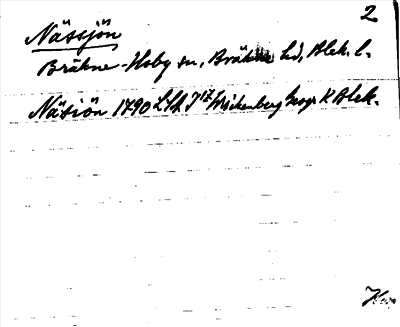 2
Nässjön
Bräkne-Hoby sn, Bräkne hd, Blek. l.
Näsiön 1790 Wickenberg Geogr K Blek.